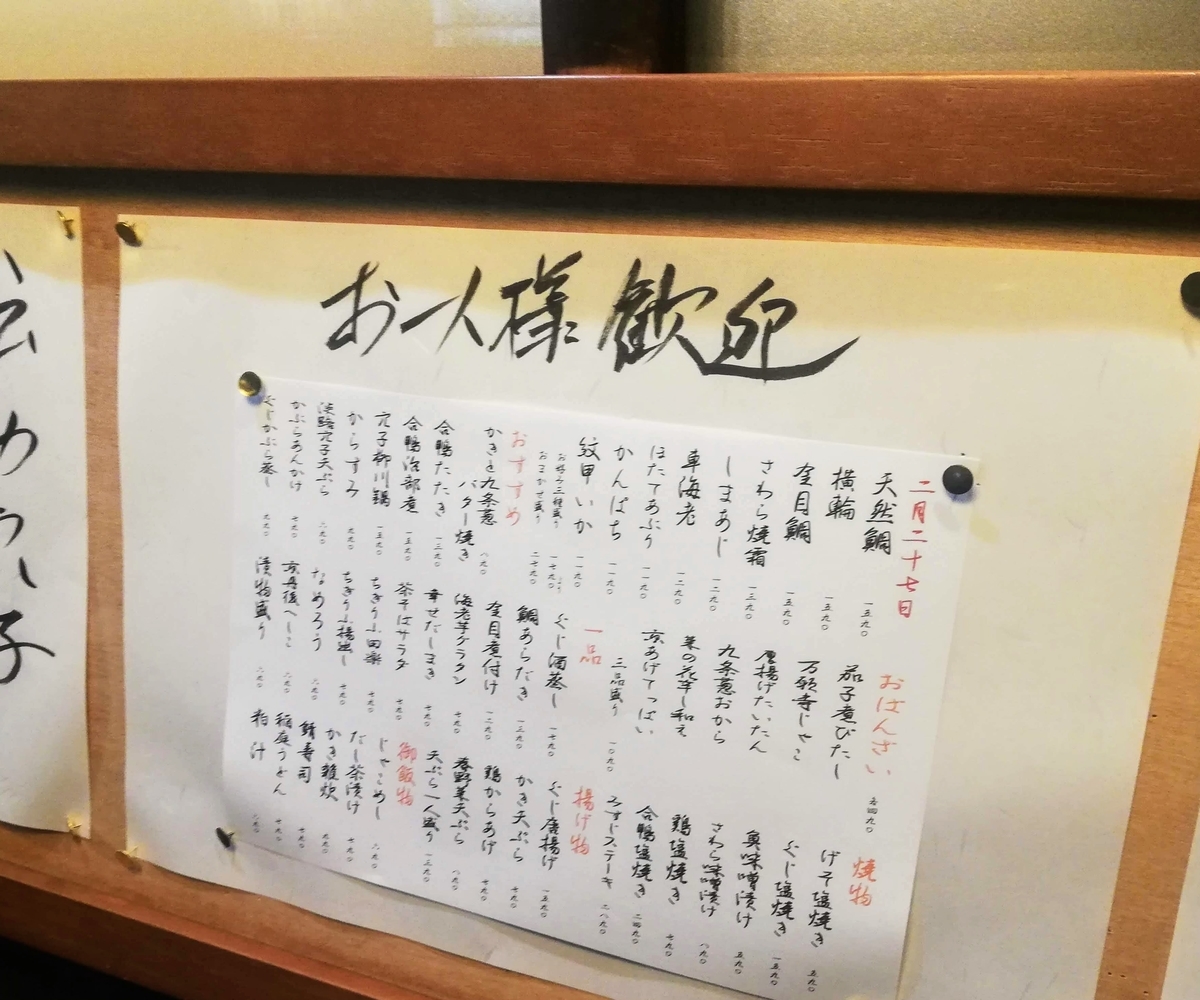 お一人様歓迎
二月二十七日
天然鯛 一五九〇
横輪 一五九〇
金目鯛 一五九〇
さわら焼霜 一三九〇
しまあじ 一二九〇
車海老 一二九〇
ほたてあぶり 一一九〇
かんぱち 一一九〇
紋甲いか 一一九〇
お好み三種盛り 一七九〇
おまかせ盛り 二七九〇
おすすめ
かきと九条葱
バター焼き 八九〇
合鴨たたき 一三九〇
合鴨治部煮 一五九〇
穴子柳川鍋 一五九〇
からすみ 九九〇
淡路穴子天ぷら 六九〇
かぶらあんかけ 七九〇
ぐじかぶら蒸し 九九〇
おばんざい 各四九〇
茄子煮びたし
万願寺じゃこ
厚揚げたいたん
九条葱おから
菜の花辛し和え
京あげてっぱい
三品盛り 一〇九〇
一品
ぐじ酒蒸し 一七九〇
鯛あらだき 一三九〇
金目煮付け 一二九〇
海老芋グラタン 七九〇
幸せだしまき 七九〇
茶そばサラダ 七九〇
ちきりふ田楽 七九〇
ちきりふ揚出し 七九〇
なめろう 六九〇
京丹後へしこ 六九〇
漬物盛り 六九〇
焼物
げそ塩焼き 五九〇
ぐじ塩焼き 一五九〇
奥味噌漬け 五九〇
さわら味噌漬け 八九〇
鶏塩焼き 七九〇
合鴨塩焼き 二四九〇
みすじステーキ 二八九〇
揚げ物
ぐじ唐揚げ 一五九〇
かき天ぷら 七九〇
鶏からあげ 七九〇
春野菜天ぷら 八九〇
天ぷら一人盛り 一三九〇
御飯物
じゃこめし 六九〇
だし茶漬け 七九〇
かき雑炊 九九〇
鯖寿司 七九〇
稲庭うどん 七九〇
粕汁 六九〇